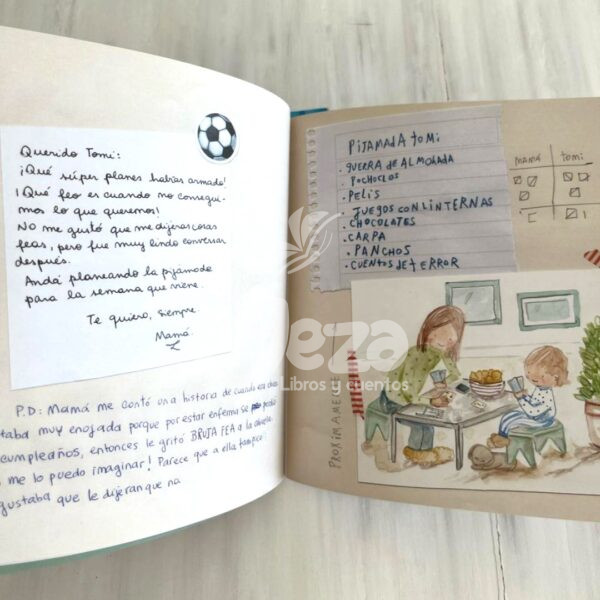 Querido Tomi:
¡Qué súper planes habías armado!
¡Qué feo es cuando no consegui-
mos lo que queremos!
NO me gustó que me dijeras cosas
feas, pero fue muy lindo conversar
después.
Andá planeando la pijamada
para la semana que viene.
Te quiero, siempre.
Mamá.
P.D: Mamá me contó una historia de cuando era
taba muy enojada porque por estar enferma se perdió
cumpleaños, entonces le gritó BRUJA FEA a la abuela.
me lo puedo imaginar! Parece que a ella tampoco
gustaba que le dijeran que
PIJAMADA TOMI
·GUERRA DE ALMOHADA
·POCHOCLOS
·PELIS
JUEGOS CON LINTERNAS
·CHOCOLATES
·CARPA
·PANCHOS
·CUENTOS DE TERROR
MAMÁ TOMI
PROXIMAME
Deza
Libros y cuentos